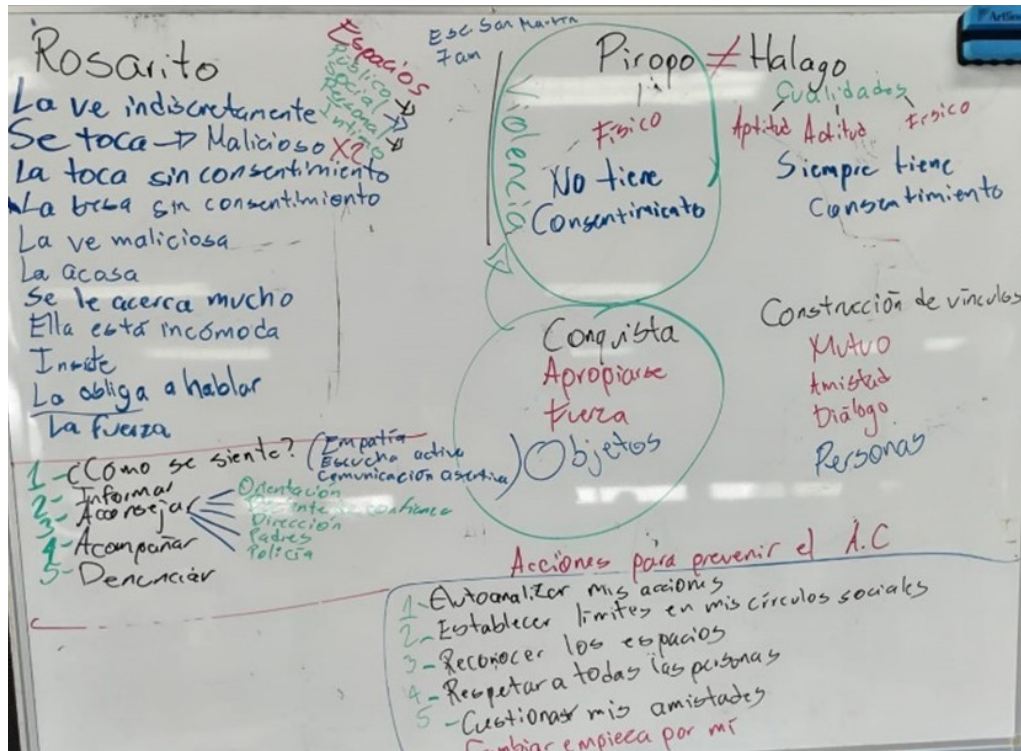 Rosarito
La ve indiscretamente
Se toca → Malicioso X2
La toca sin consentimiento
La besa sin consentimiento
La ve maliciosa
La acosa
Se le acerca mucho
Ella está incómoda
Insiste
La obliga a hablar
La fuerza
Espacios
Público
Social
Personal
Intimo
Esc. San Martín
7 am
Violencia
Piropo ≠ Halago
Físico
No tiene
Consentimiento
Cualidades
Aptitud Actitud Físico
Siempre tiene
Consentimiento
Conquista
Apropiarse
Fuerza
Objetos
Construcción de vínculos
Mutuo
Amistad
Diálogo
Personas
1- ¿Cómo se siente? (Empatía
Escucha activa
Comunicación asertiva)
2- Informar
3- Aconsejar
4- Acompañar
5- Denunciar
Orientación
confianza
Dirección
Padres
Policía
Acciones para prevenir el A.C
1- Autoanalizar mis acciones
2- Establecer límites en mis círculos sociales
3- Reconocer los espacios
4- Respetar a todas las personas
5- Cuestionar mis amistades
Cambiar empieza por mí